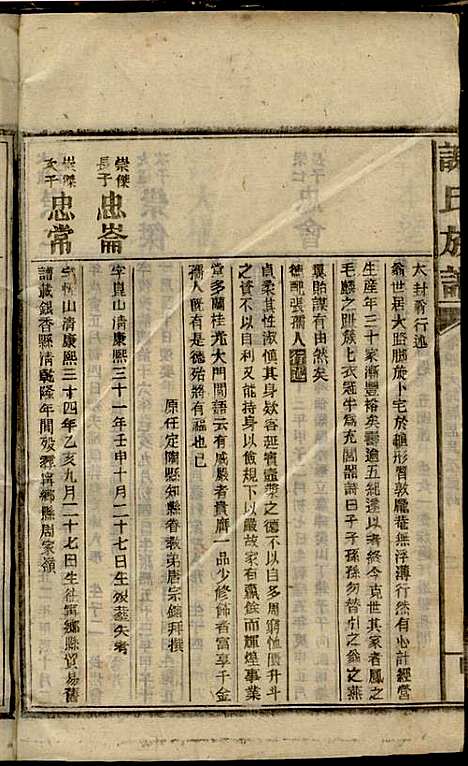 謝氏族譜
太封翁行述
翁世居大路腳族卜宅於樾形習敦龐菴無浮薄行然有心計經營
生產年三十家漸豐裕矣壽逾五純遂以考終今克世其家者厲
毛麟之趾族上衣冠半爲充閭器詩曰子子孫孫勿替引之翁之燕
翼貽謀有由然矣
德配張孺人行述
貞柔其性淑愼其身欵客延賓壼槳之德不以自多周窮恤匱升斗
之資不以自利又能持身以儉規下以嚴故家有贏餘而輝煌事業
堂多蘭桂光大門閭語云有威嚴者貴膺一品少修飾者富享千金
孺人旣有是德殆將有福也已
原任定陶縣知縣眷教弟唐宗鎬拜撰
崇傑長子
忠崙
字崑山淸康熙三十一年壬申十月二十七日生歿葬失考
崇傑次子
忠常
字恆山淸康熙三十四年乙亥九月二十七日生往寧鄉縣貿易舊
譜載娶香縣淸乾隆年間歿葬寧鄉縣周家嶺